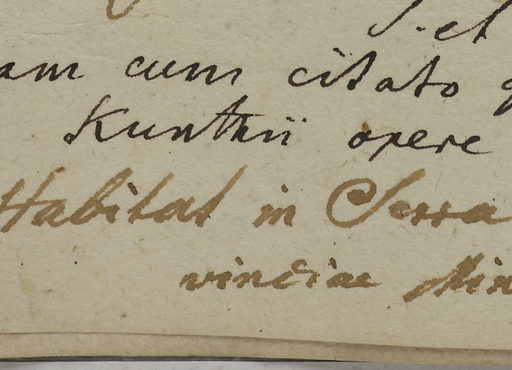 et
am cum citato
Kunthii opere
Habitat in Serra
vinciae Min